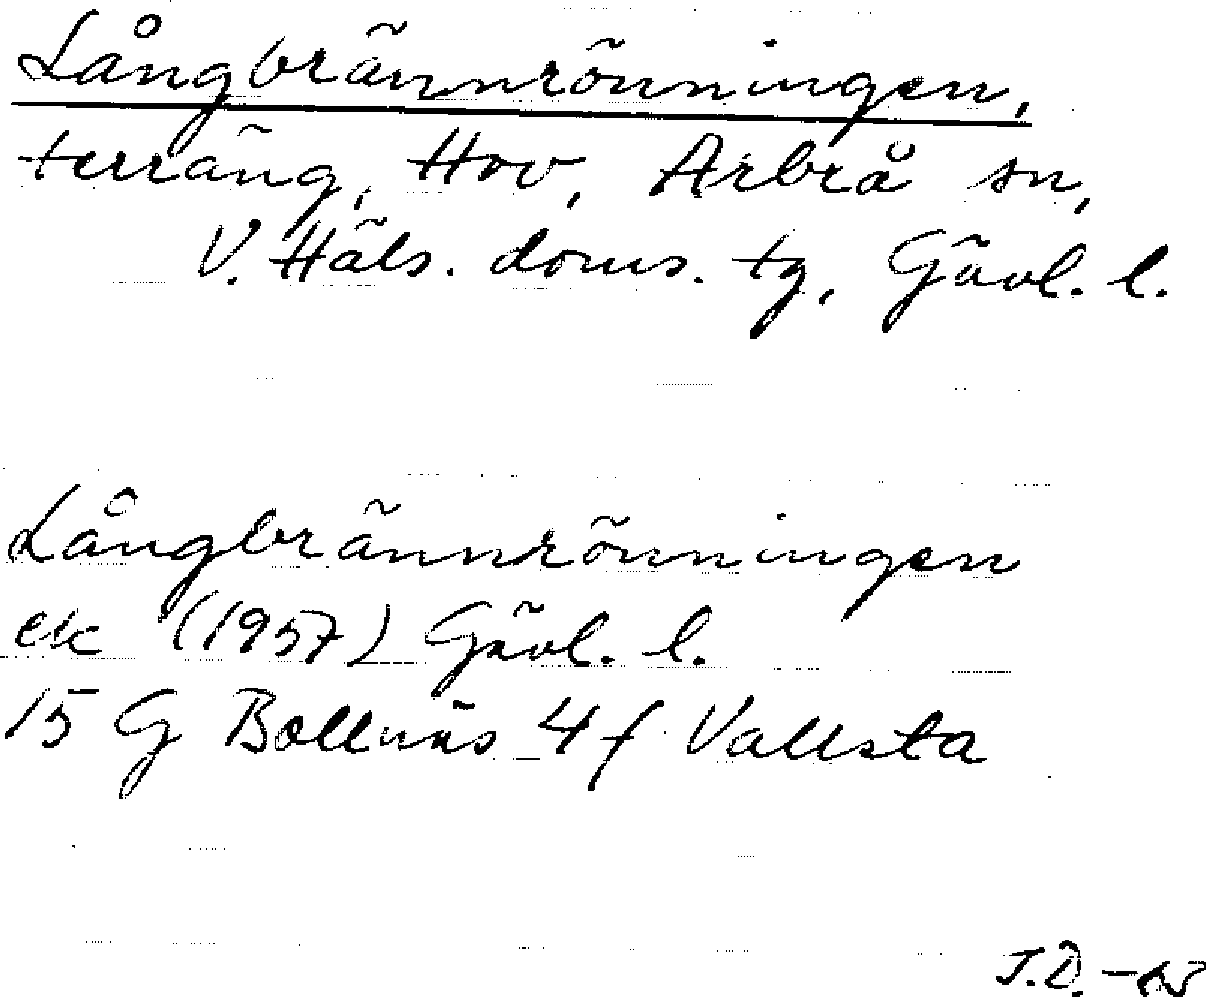 Långbrännrönningen,
terräng, Hov, Arbrå sn,
V. Häls. doms. tg, Gävl. l.
Långbrännrönningen
ek (1957) Gävl. l.
15 G Bollnäs 4 f Vallsta
J.Ö.